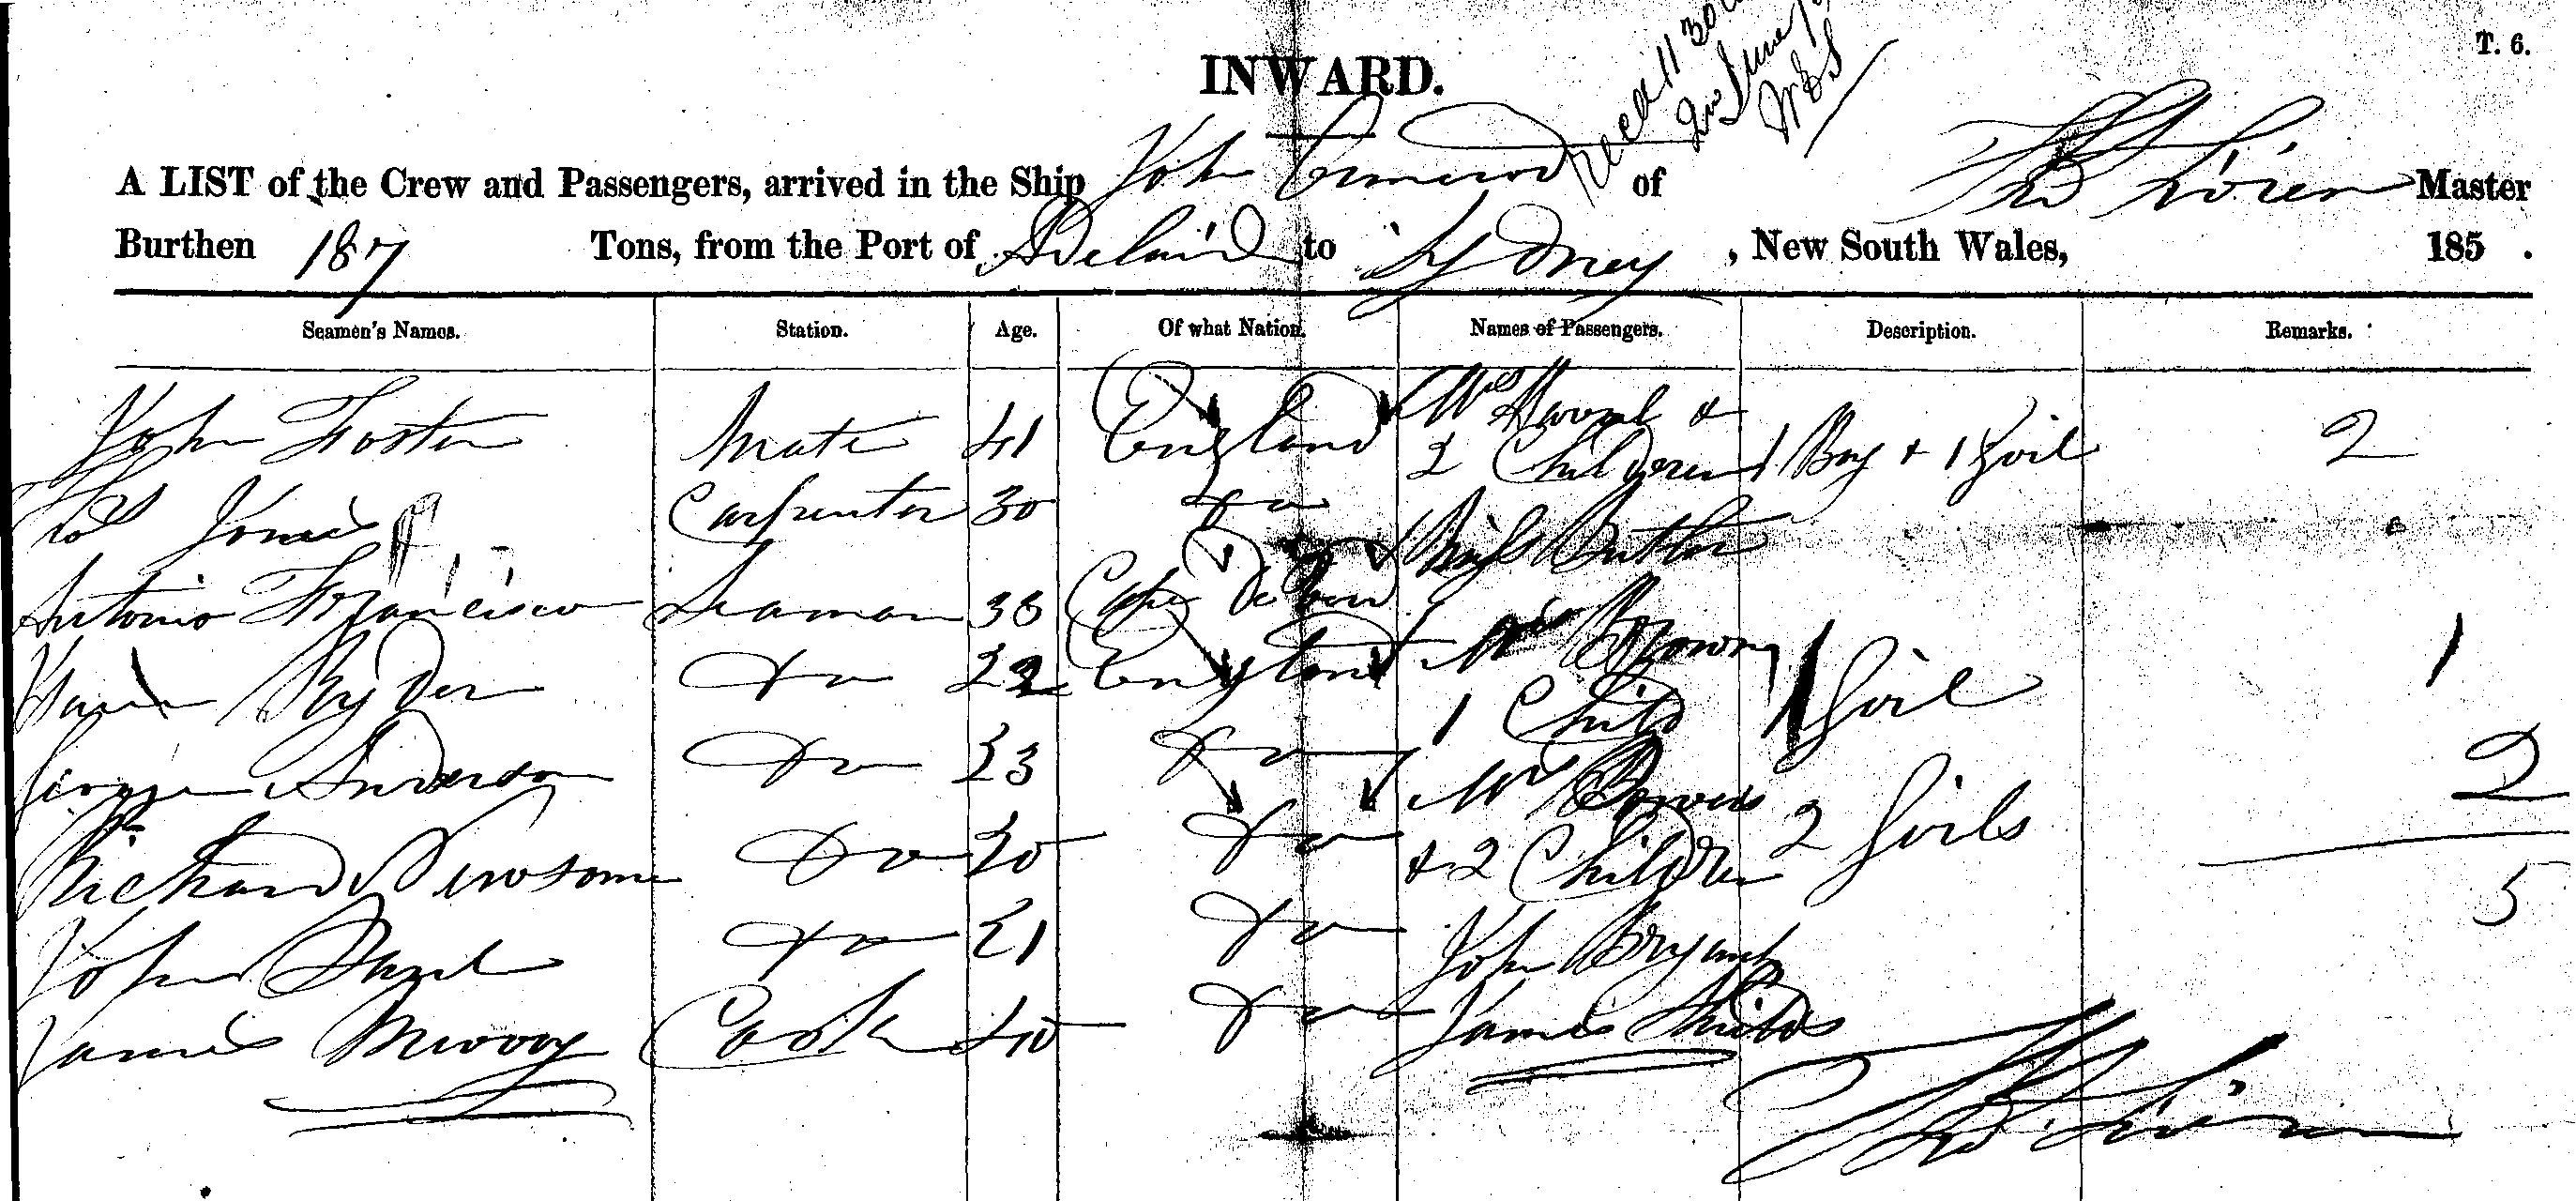 T. 6.
INWARD.
Recd 11 30
2nd June
A LIST of the Crew and Passengers, arrived in the Ship John Ormerod of Master
Burthen 187 Tons, from the Port of Adelaid to Sydney, New South Wales, 185 .
Seamen's Names. Station. Age. Of what Nation. Names of Passengers. Description. Remarks.
John Foster Mate 41 England Mrs &
2 Children 1 Boy + 1 Girl 2
Thos Jones Carpenter 30 Do
Butler
Antonio Francisco Seaman 38 Cape De
Ryder Do 22 England Mrs Brown
1 Child 1 Girl 1
Anderson Do 23 Do
Mrs
Richard Newsome Do 20 Do & 2 Children 2 Girls 2
5
John Do 21 Do John Bryant
James Cook 40 Do James Shields